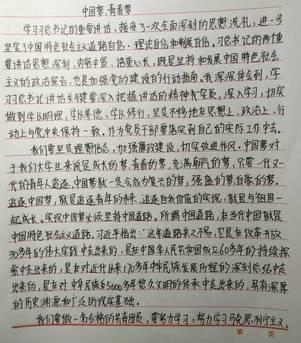 中国梦,有着梦
学习习总书记的重要讲话,接受了一次全面深刻的思想洗礼,进一步
坚定了中国特色社会主义道路自信、理论自信和制度自信。习总书记的两个重
要讲话思想深刻、内容丰富、语重心长,既是坚持和发展中国特色社会主
义的政治宣言,也是加强党的建设的行动指南。我深深体会到,学
习习总书记讲话关键要深入把握讲话的精神实质,深入学习,切实
做到学以明理,学以善德,学以修行,坚定不移地在思想上、政治上、行
动上与党中央保持一致,作为党员干部要落实到自己的实际工作中去。
我们要坚定理想信念,加强廉政建设,切实改进作风。中国梦对
于我们大学生来说是成长的梦,有着的梦,充满朝气的梦,只要一代又一
代的青年人追逐,中国梦就一定会成为复兴的梦,强盛的梦,自豪的梦。
追逐中国梦,就是追逐青年的未来,追逐自我价值的实现,就是与祖国一
起成长。实现中国梦必须坚持中国道路,所谓中国道路,在当今中国就是
中国特色社会主义道路。习近平指出:“这条道路来之不易,它是在改革开放
30多年的伟大实践中走出来的,是在中华人民共和国成立60多年的持续探
索中走出来的,是在对近代以来170多年中华民族发展历程的深刻总结中走
出来的,是在对中华民族5000多年悠久文明的传承中走出来的,具有深厚
的历史渊源和广泛的现实基础。
我们要做一名合格的共青团员,要努力学习,努力学习马克思列宁主义、
第 页